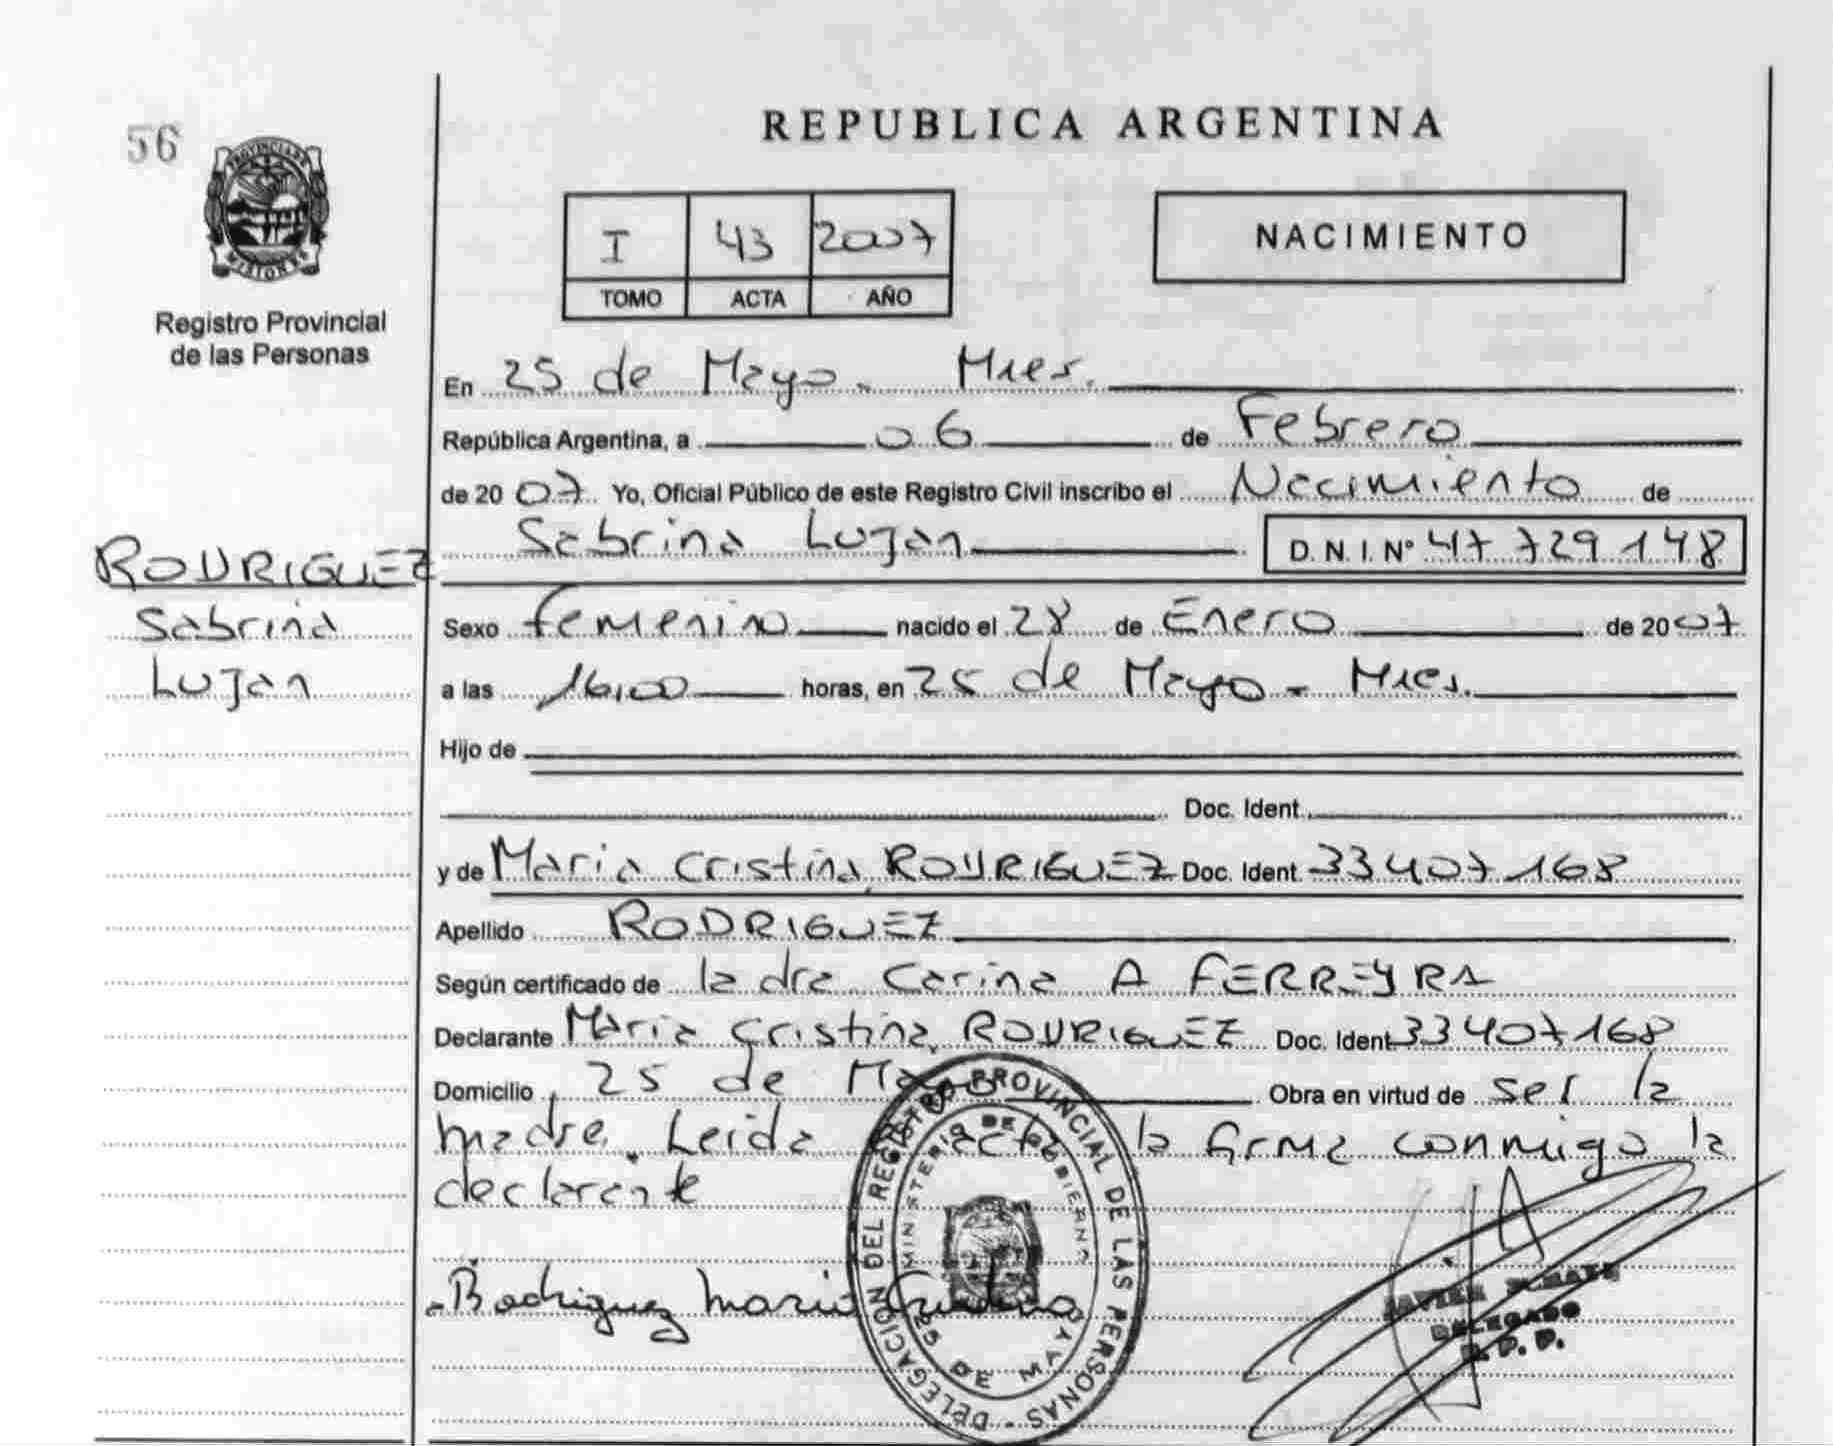 56
PROVINCIA DE
MISIONES
Registro Provincial
de las Personas
RODRIGUEZ
Sabrina
Lujan
REPUBLICA ARGENTINA
I 43 2007
TOMO ACTA AÑO
NACIMIENTO
En 25 de Mayo - Mnes.
República Argentina, a 06 de Febrero
de 2007 Yo, Oficial Público de este Registro Civil inscribo el Nacimiento de
Sabrina Lujan D. N. I. N° 47 729 148
Sexo femenino nacido el 28 de Enero de 2007
a las 16,00 horas, en 25 de Mayo - Mnes.
Hijo de
Doc. Ident.
y de Maria Cristina RODRIGUEZ Doc. Ident. 33407168
Apellido RODRIGUEZ
Según certificado de la dra Carina A FERREYRA
Declarante Maria Cristina RODRIGUEZ Doc. Ident. 33407168
Domicilio 25 de Mayo Obra en virtud de ser la
madre. Leida acta la firma conmigo la
declarante
Rodriguez Maria Cristina
DELEGACIÓN DEL REGISTRO PROVINCIAL DE LAS PERSONAS
MINISTERIO DE GOBIERNO
25 DE MAYO
JAVIER
DELEGADO
R. P. P.